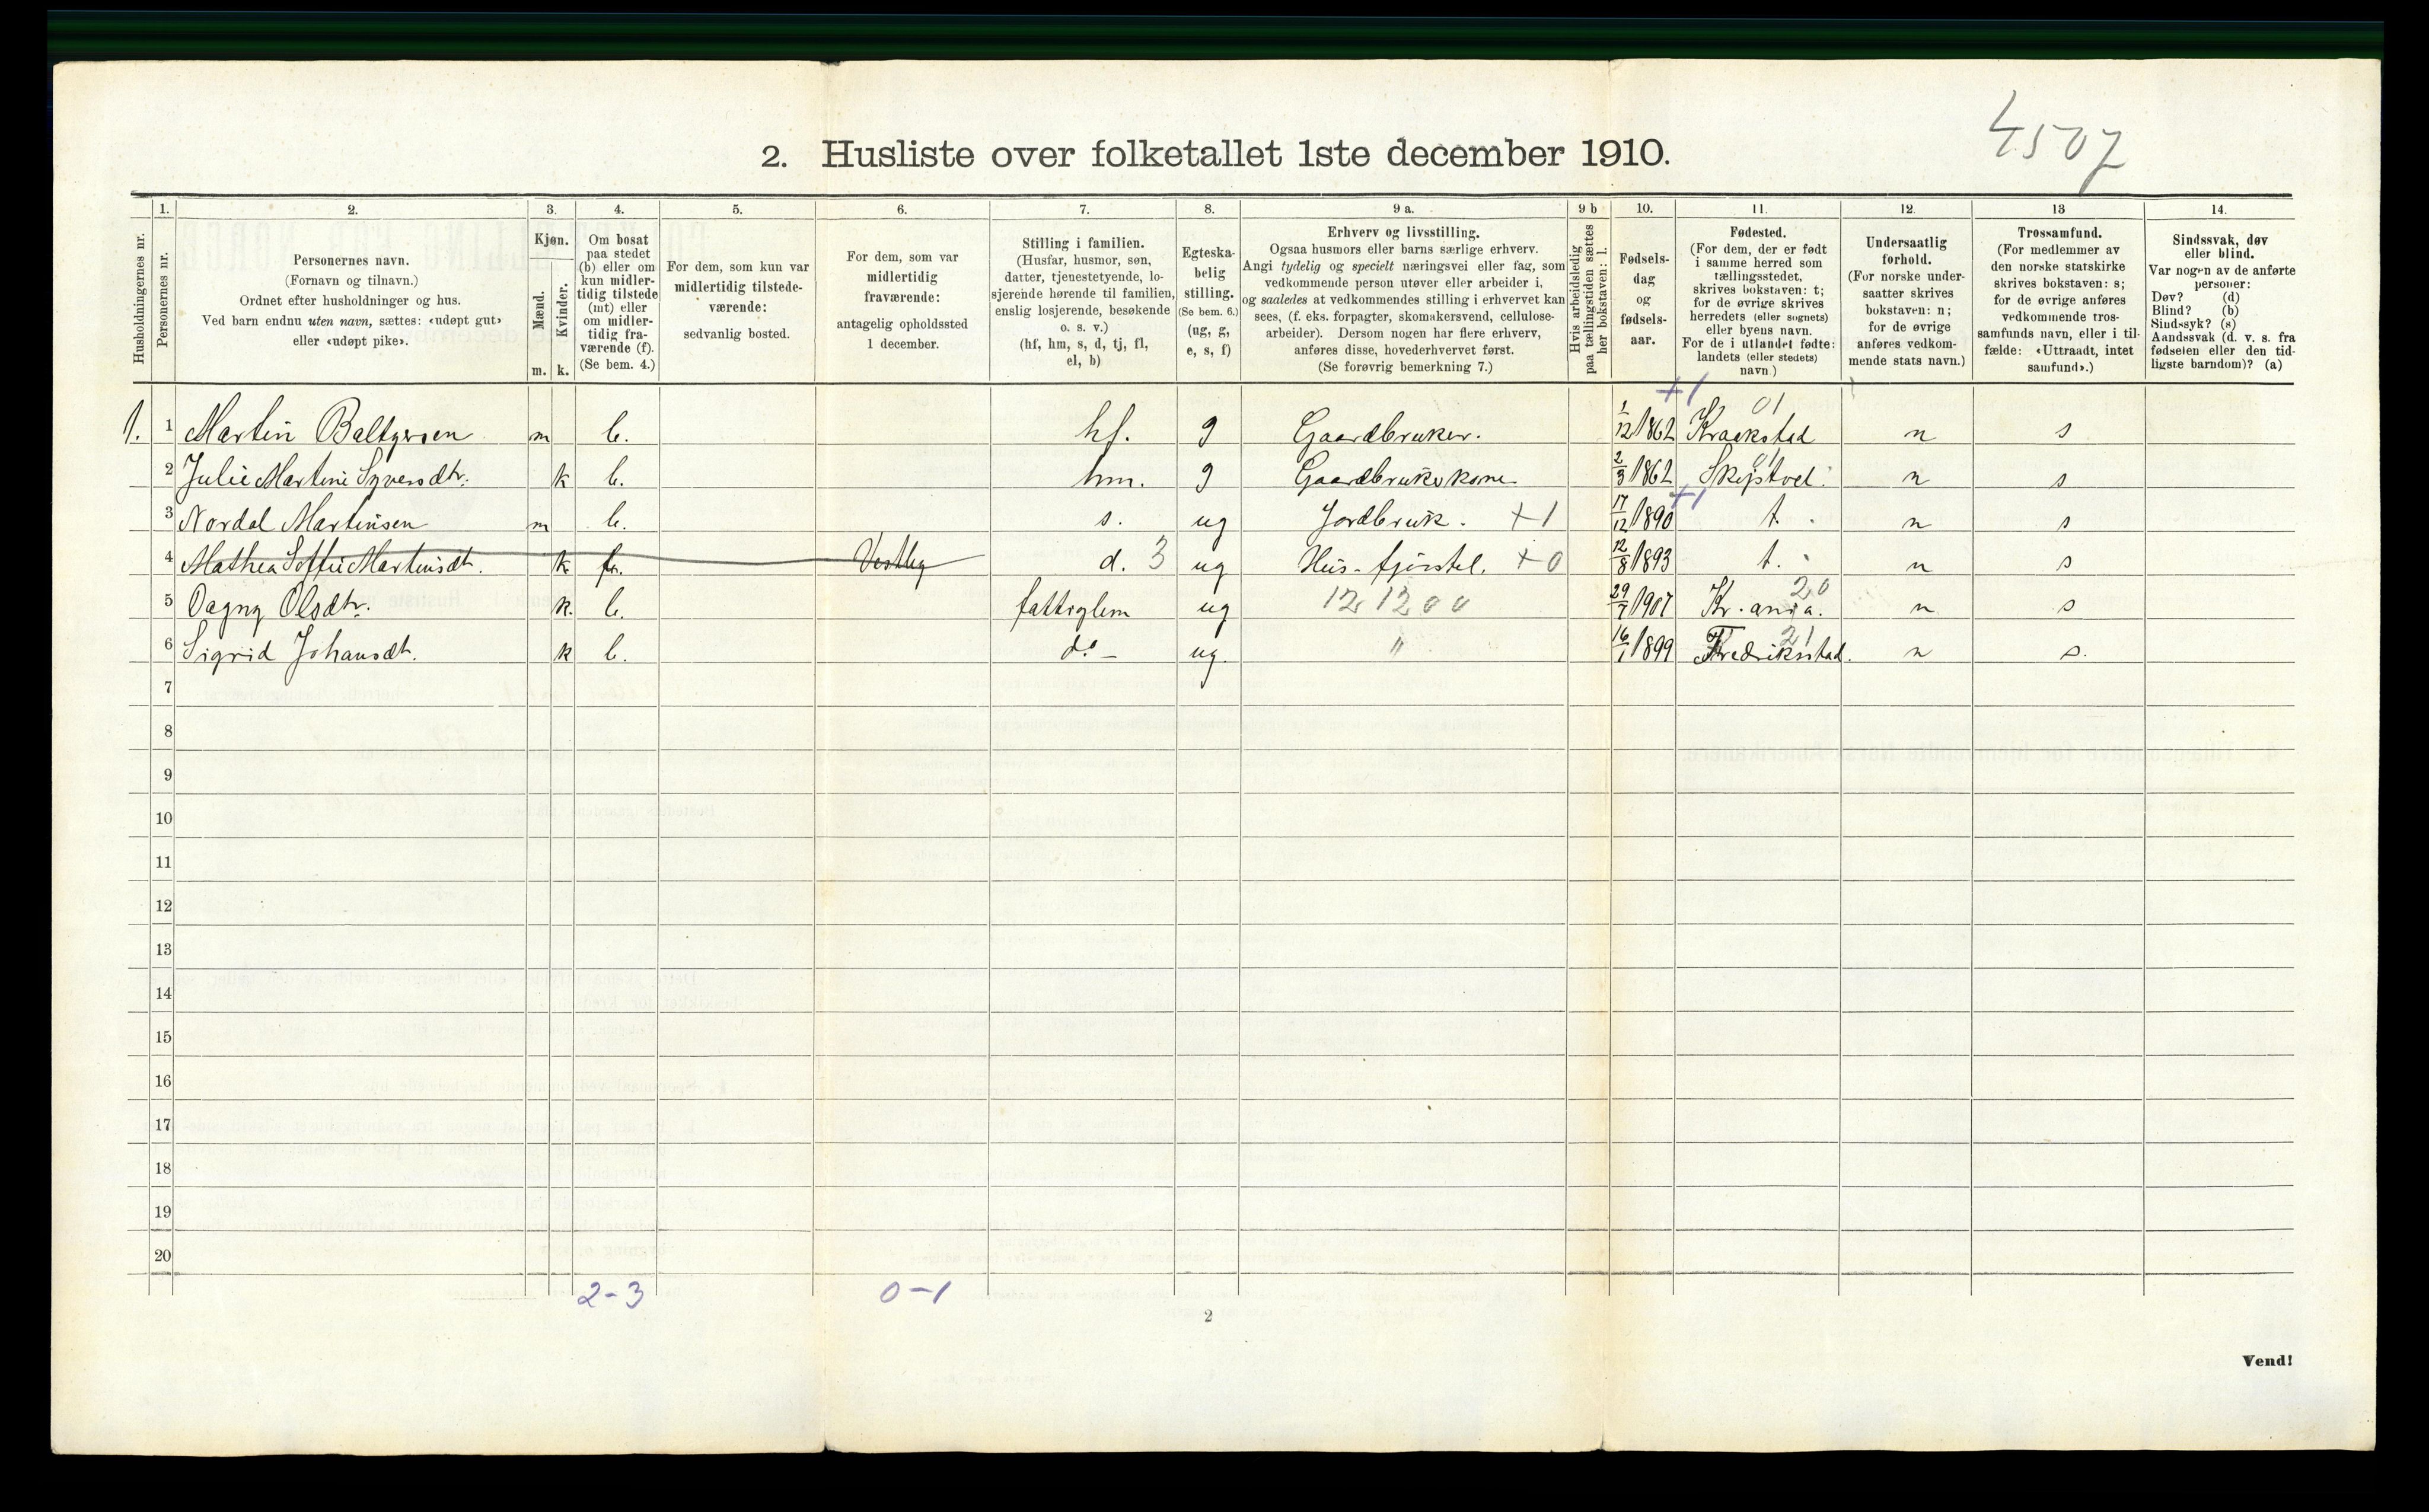 4507
2. Husliste over folketallet 1ste december 1910.
Husholdningernes nr.
1.
Personernes nr.
2.
Personernes navn.
(Fornavn og tilnavn.)
Ordnet efter husholdninger og hus.
Ved barn endnu uten navn, sættes: «udøpt gut»
eller «udøpt pike».
3.
Kjøn.
Mænd.
Kvinder.
m. k.
4.
Om bosat
paa stedet
(b) eller om
kun midler-
tidig tilstede
(mt) eller
om midler-
tidig fra-
værende (f).
(Se bem. 4.)
5.
For dem, som kun var
midlertidig tilstede-
værende:
sedvanlig bosted.
6.
For dem, som var
midlertidig
fraværende:
antagelig opholdssted
1 december.
7.
Stilling i familien.
(Husfar, husmor, søn,
datter, tjenestetyende, lo-
sjerende hørende til familien,
enslig losjerende, besøkende
o. s. v.)
(hf, hm, s, d, tj, fl,
el, b)
8.
Egteska-
belig
stilling.
(Se bem. 6.)
(ug, g,
e, s, f)
9 a.
Erhverv og livsstilling.
Ogsaa husmors eller barns særlige erhverv.
Angi tydelig og specielt næringsvei eller fag, som
vedkommende person utøver eller arbeider i,
og saaledes at vedkommendes stilling i erhvervet kan
sees, (f. eks. forpagter, skomakersvend, cellulose-
arbeider). Dersom nogen har flere erhverv,
anføres disse, hovederhvervet først.
(Se forøvrig bemerkning 7.)
9 b
Hvis arbeidsledig
paa tællingstiden sættes
her bokstaven: l.
10.
Fødsels-
dag
og
fødsels-
aar.
11.
Fødested.
(For dem, der er født
i samme herred som
tællingsstedet,
skrives bokstaven: t;
for de øvrige skrives
herredets (eller sognets)
eller byens navn.
For de i utlandet fødte:
landets (eller stedets)
navn.)
12.
Undersaatlig
forhold.
(For norske under-
saatter skrives
bokstaven: n;
for de øvrige
anføres vedkom-
mende stats navn.)
13
Trossamfund.
(For medlemmer av
den norske statskirke
skrives bokstaven: s;
for de øvrige anføres
vedkommende tros-
samfunds navn, eller i til-
fælde: «Uttraadt, intet
samfund».)
14.
Sindssvak, døv
eller blind.
Var nogen av de anførte
personer:
Døv? (d)
Blind? (b)
Sindssyk? (s)
Aandssvak (d. v. s. fra
fødselen eller den tid-
ligste barndom)? (a)
+1 01
1. 1 Martin Baltzersen m b. hf. g Gaardbruker. 1/12 1862 Kraakstad n s
2 Julie Martine Syversdtr. k b. hm. g Gaardbrukskone 2/3 1862 01 Skiptvet. n s
3 Nordal Martinsen m b. s. ug Jordbruk. +1 17/12 1890 +1 t. n s
4 Mathea Soffie Martinsdt. k f. Vestby d. 3 ug Hus-gjerstel. +0 12/8 1893 t. n s
5 Dagny Olsdtr. k. b. fattiglem ug 12 12 00 29/7 1907 Kr.ania. 20 n s
6 Sigrid Johansdt. k b. do - ug. " 16/1 1899 Fredriksstad. 21 n s.
7
8
9
10
11
12
13
14
15
16
17
18
19
20
2-3 0-1
2
Vend!